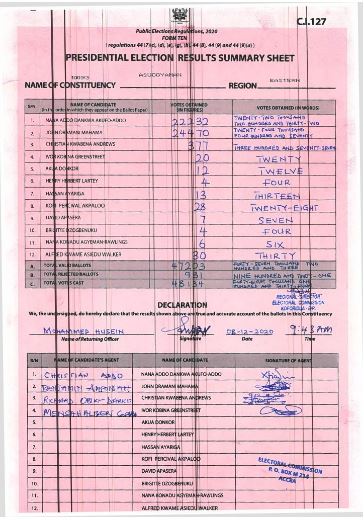 CI.127
Public Elections Regulations, 2020
FORM TEN
PRESIDENTIAL ELECTION RESULTS SUMMARY SHEET
NAME OF CONSTITUENCY ASUOGYAMAN REGION EASTERN
S/N NAME OF CANDIDATE VOTES OBTAINED VOTES OBTAINED (IN WORDS)
(in the order in which they appear on the Ballot Paper) (IN FIGURES)
1. NANA ADDO DANKWA AKUFO-ADDO 22232 TWENTY-TWO THOUSAND TWO HUNDRED AND THIRTY-TWO
2. JOHN DRAMANI MAHAMA 24470 TWENTY-FOUR THOUSAND FOUR HUNDRED AND SEVENTY
3. CHRISTIAN KWABENA ANDREWS 377 THREE HUNDRED AND SEVENTY-SEVEN
4. IVOR KOBINA GREENSTREET 20 TWENTY
5. AKUA DONKOR 12 TWELVE
6. HENRY HERBERT LARTEY 4 FOUR
7. HASSAN AYARIGA 13 THIRTEEN
8. KOFI PERCIVAL AKPALOO 28 TWENTY-EIGHT
9. DAVID APASERA 7 SEVEN
10. BRIGITTE DZOGBENUKU 4 FOUR
11. NANA KONADU AGYEMAN-RAWLINGS 6 SIX
12. ALFRED KWAME ASIEDU WALKER 30 THIRTY
A. TOTAL VALID BALLOTS 47203 FORTY-SEVEN THOUSAND TWO HUNDRED AND THREE
B. TOTAL REJECTED BALLOTS 931 NINE HUNDRED AND THIRTY-ONE
C. TOTAL VOTES CAST 48134 FORTY-EIGHT THOUSAND ONE HUNDRED AND THIRTY-FOUR
REGIONAL DIRECTOR
ELECTORAL COMMISSION
KOFORIDUA
DECLARATION
We, the undersigned, do hereby declare that the results shown above are true and accurate account of the ballots in this Constituency
MOHAMMED HUSEIN 08-12-2020 9:43 AM
Name of Returning Officer Signature Date Time
S/N NAME OF CANDIDATE'S AGENT NAME OF CANDIDATE SIGNATURE OF AGENT
1. CHRISTIAN ADDO NANA ADDO DANKWA AKUFO-ADDO
2. BENJAMIN JOHN DRAMANI MAHAMA
3. RICHARD CHRISTIAN KWABENA ANDREWS
4. IVOR KOBINA GREENSTREET
5. AKUA DONKOR
6. HENRY HERBERT LARTEY
7. HASSAN AYARIGA
8. KOFI PERCIVAL AKPALOO
9. DAVID APASERA
10. BRIGITTE DZOGBENUKU
11. NANA KONADU AGYEMAN-RAWLINGS
12. ALFRED KWAME ASIEDU WALKER
ELECTORAL COMMISSION
P. O. BOX M 214
ACCRA